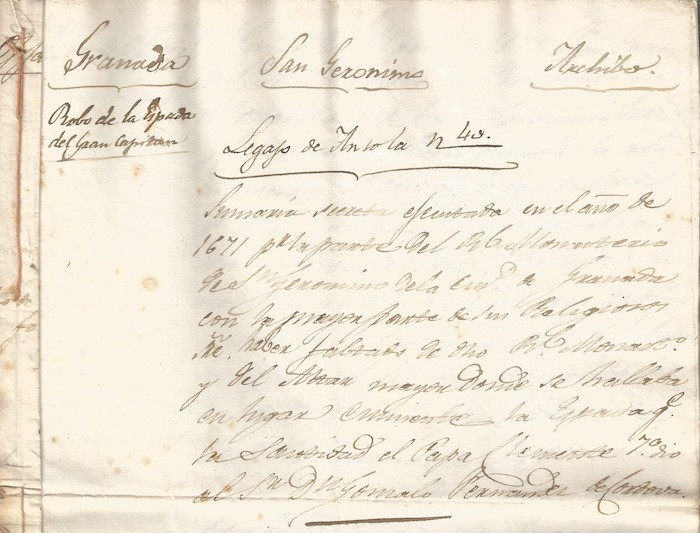 Granada
San Geronimo
Archibo.
Robo de la Espada
del Gran Capitan
Legajo de Antola n 40.
Sumaria secreta ejecutada en el año de
1671 pr la parte del Rl. Monasterio
de Sn Geronimo de la Ciud. de Granada
con la mayor parte de sus Religiosos
sre. haber faltado de dho Rl. Monasto.
y del Altar mayor donde se hallaba
en lugar eminente la Espada q.
la Santidad el Papa Clemente 7º dio
al Sr. Dn Gonzalo Fernandez de Cordova.